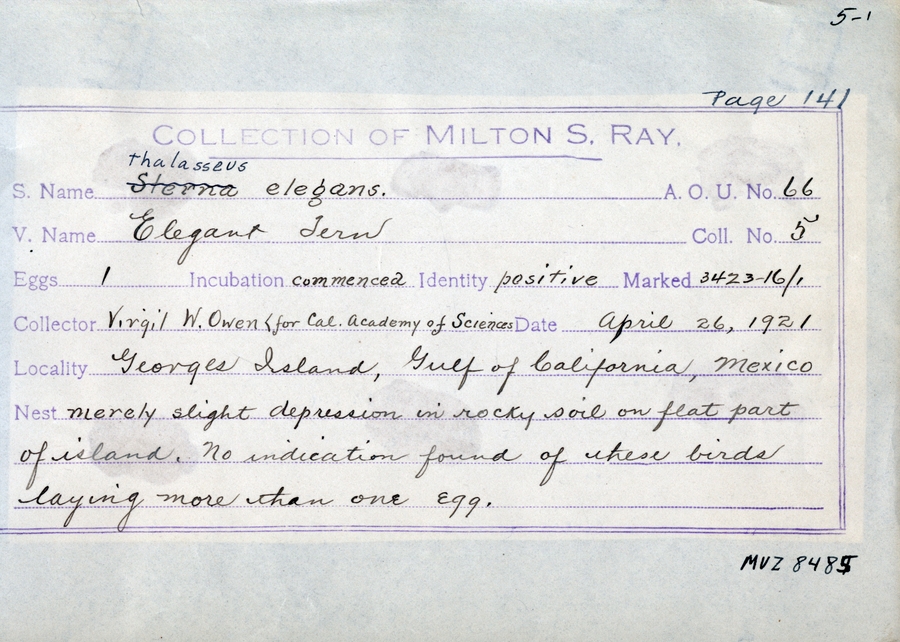 5-1
Page 141
COLLECTION OF MILTON S. RAY.
thalasseus
S. Name Sterna elegans. A. O. U. No. 66
V. Name Elegant Tern Coll. No. 5
Eggs 1 Incubation commenced Identity positive Marked 3423-16/1
Collector Virgil W. Owen (for Cal. Academy of Sciences Date April 26, 1921
Locality Georges Island, Gulf of California, Mexico
Nest merely slight depression in rocky soil on flat part
of island. No indication found of these birds
laying more than one egg.
MVZ 8485